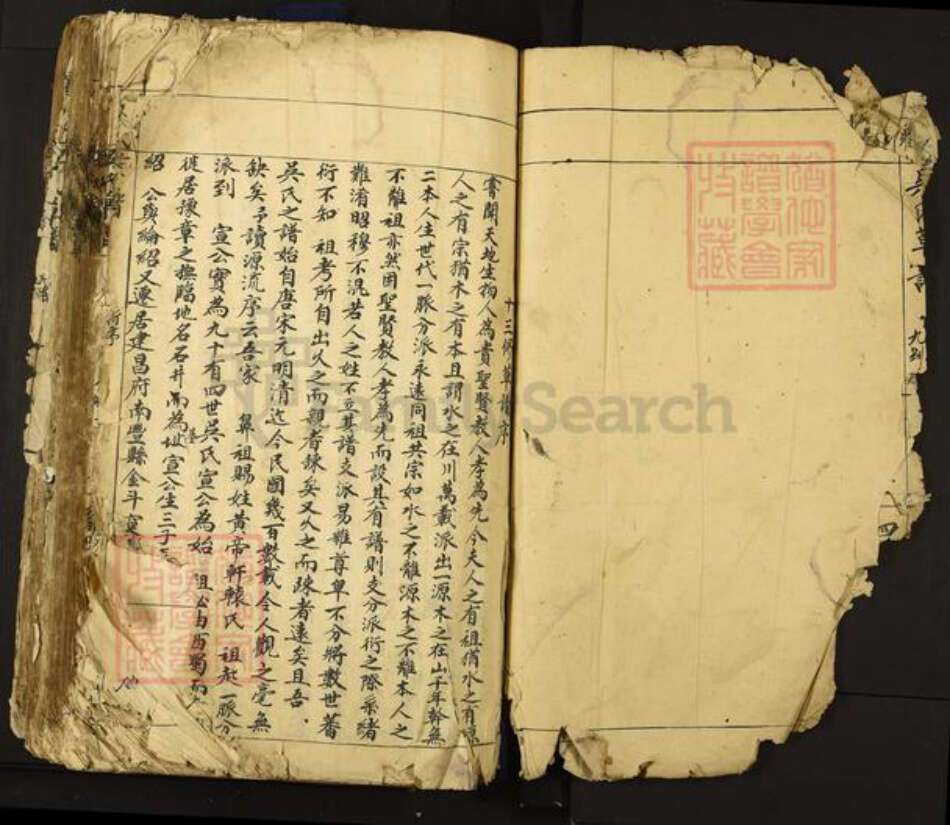 十三修草譜序
嘗聞天地生物人為貴聖賢教人孝為先今夫人之有祖猶水之有源
人之有宗猶木之有本且謂水之在川萬載派出一源木之在山千年幹無
二本人生世代一脈分派永遠同祖共宗如水之不離源木之不離本人之
不離祖亦然固聖賢教人孝為先而設其有譜則支分派衍之際系緒
難淆昭穆不混若人之姓不立其譜支派易難尊卑不分將數世蕃
衍不知 祖考所自出久之而親者踈矣又久之而踈者遠矣且吾
吳氏之譜始自唐宋元明清迄今民國幾百數載令人觀之毫無
缺矣予讀源流序云吾家 鼻祖賜姓黃帝軒轅氏 祖起一脈分
派到 宣公實為九十有四世吳氏宣公為始 祖公由西蜀而
徙居豫章之撫臨地名石井而為址宣公生三子
紹 公與綸紹又遷居建昌府南豐縣金斗
九列
四
譜學會
收藏
FamilySearch